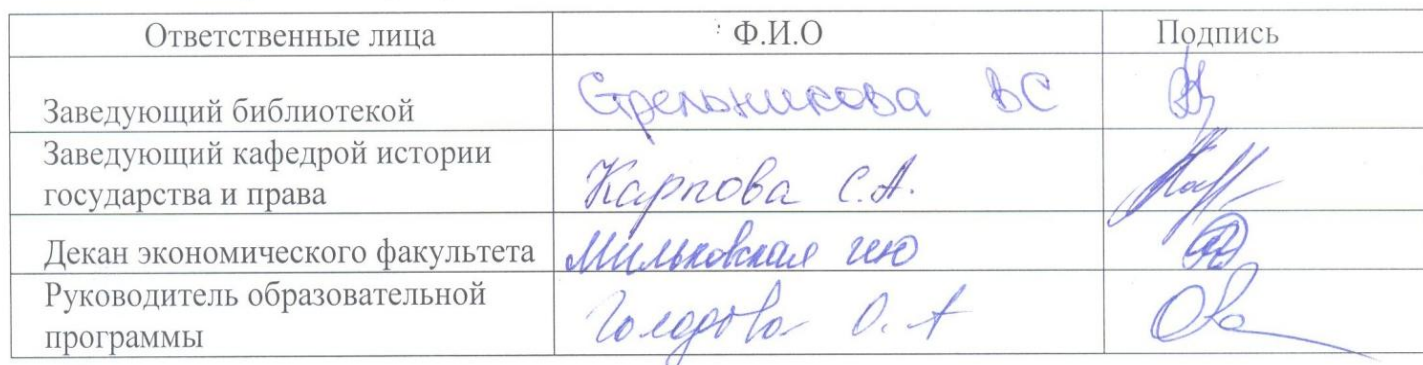 Ответственные лица Ф.И.О Подпись
Заведующий библиотекой Стрельникова ВС
Заведующий кафедрой истории
государства и права Карпова С.А.
Декан экономического факультета Мильковская
Руководитель образовательной
программы О.А